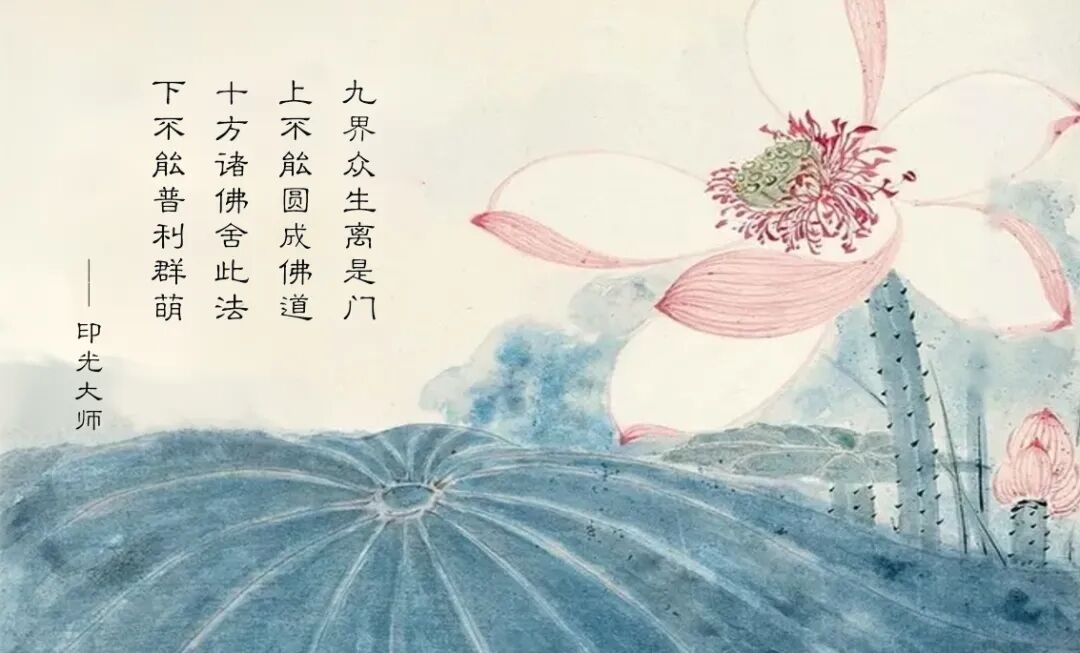 九界众生离是门
上不能圆成佛道
十方诸佛舍此法
下不能普利群萌
——印光大师